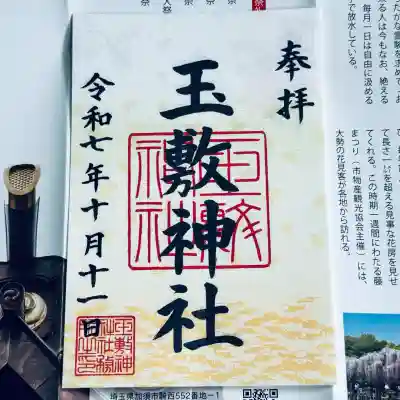 奉拝
玉敷神社
令和七年十月十一日
玉敷神社
たかな霊験を求めて、お
る人は今もなお、絶える
毎月一日は自由に汲める
で放水している。
て長さ一㍍を超える見事な花房を見せ
てくれる。この時期一週間にわたる藤
まつり（市物産観光協会主催）には、
大勢の花見客が各地から訪れる。
埼玉県加須市騎西552番地-1